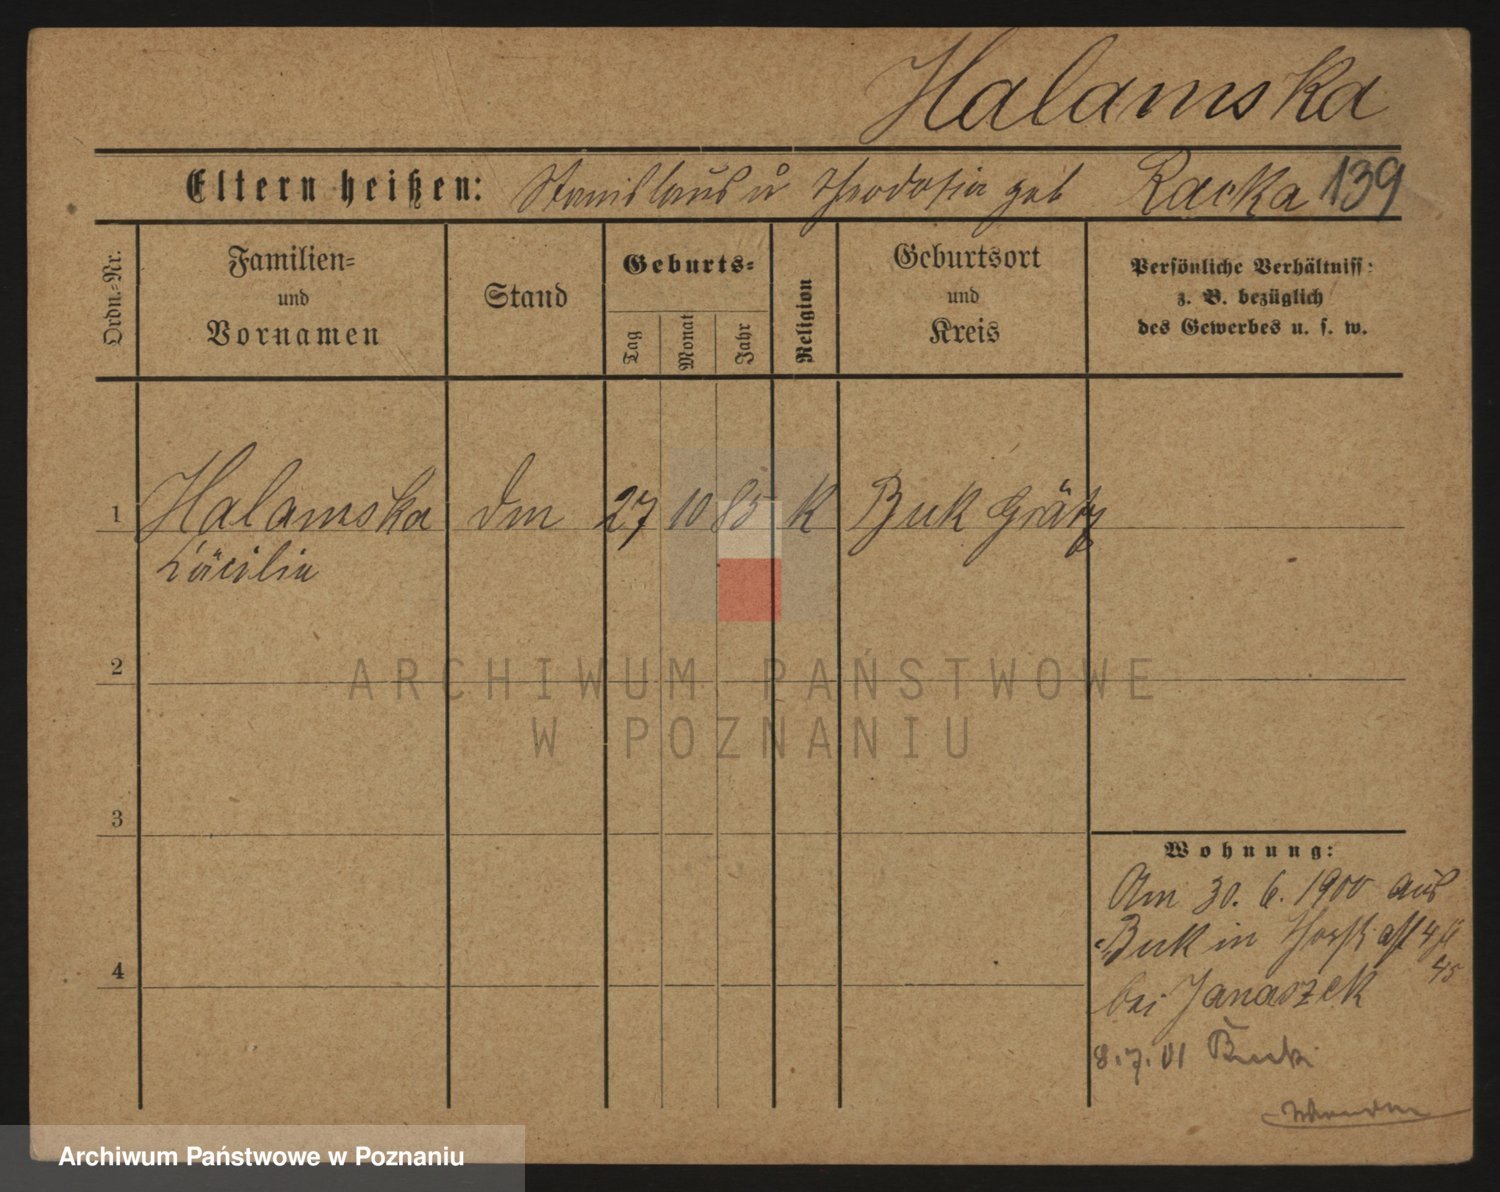 Halamska
Eltern heißen: Stanislaus u Theodosia geb Racka 139
Ordn.-Nr.
Familien- und Vornamen
Stand
Geburts-
Tag Monat Jahr
Religion
Geburtsort und Kreis
Persönliche Verhältniss:
z. B. bezüglich
des Gewerbes u. s. w.
1 Halamska dm 27 10 85 K Buk Grätz
Cäcilia
2
3
4
Wohnung:
Am 30. 6. 1900 aus
Buk in
45
bei Janaszek
8.7.01 Buk
ARCHIWUM PAŃSTWOWE
W POZNANIU
Archiwum Państwowe w Poznaniu